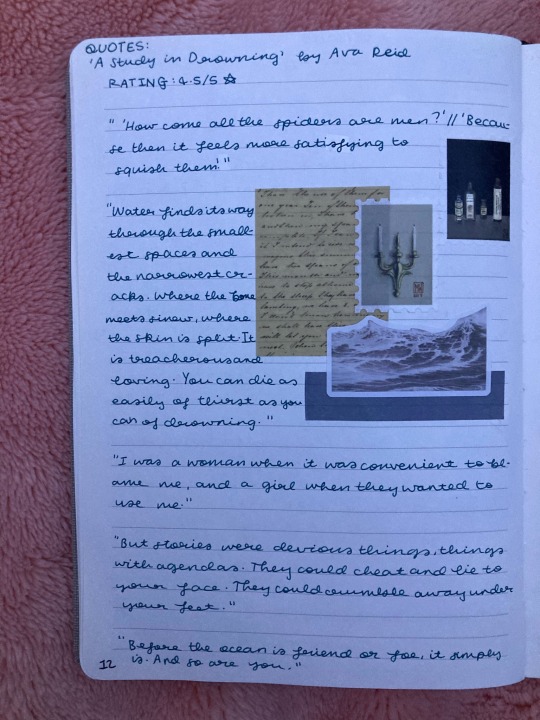 QUOTES:
'A Study in Drowning' by Ava Reid
RATING: 4.5/5 ☆
" 'How come all the spiders are men?' // 'Becau-
se then it feels more satisfying to
squish them!' "
"Water finds its way
through the small-
est spaces and
the narrowest cr-
acks. Where the bone
meets sinew, where
the skin is split. It
is treacherous and
loving. You can die as
easily of thirst as you
can of drowning."
"I was a woman when it was convenient to bl-
ame me, and a girl when they wanted to
use me."
"But stories were devious things, things
with agendas. They could cheat and lie to
your face. They could crumble away under
your feet."
"Before the ocean is friend or foe, it simply
is. And so are you."
12